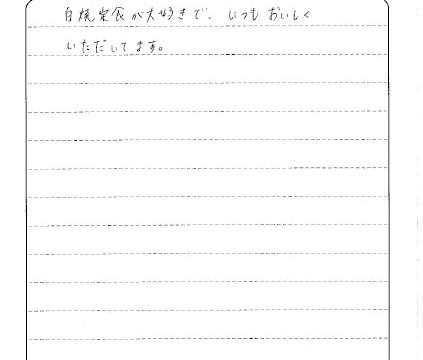 白焼定食が大好きで、いつもおいしく
いただいてます。